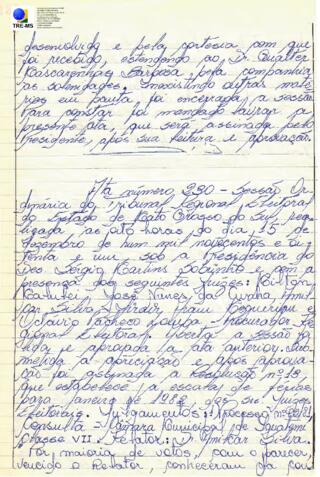 TRE-MS
desenvolvida e pela cortesia com que
foi recebido, estendendo ao Dr. Gualter
Mascarenhas Barbosa, pela companhia
às solenidades. Inexistindo outras maté
rias em pauta, foi encerrada a sessão.
Para constar foi mandado lavrar a
presente ata, que será assinada pelo
Presidente, após sua leitura e aprovação.
Ata número 230 - Sessão Or
dinária do Tribunal Regional Eleitoral
do Estado de Mato Grosso do Sul, rea
lizada às oito horas do dia 15 de
dezembro de hum mil novecentos e oi
tenta e um, sob a Presidência do
Des. Sérgio Martins Sobrinho e com a
presença dos seguintes Juízes: Milton
José Nunes da Cunha, Amil
car Silva,
Octávio Pacheco Procurador Re
gional Eleitoral. Aberta a sessão foi
lida e aprovada a ata anterior. Sub
metida a apreciação e após aprova
ção foi assinada a Resolução nº 18,
que estabelece a escala de férias
para janeiro de 1982 dos srs. Juízes
Eleitorais. Julgamentos: Processo nº
Consulta - Câmara Municipal de Iguatemi
Classe VII. Relator: Dr. Amilcar Silva.
Por maioria de votos, com o parecer,
vencido o Relator, conheceram da con